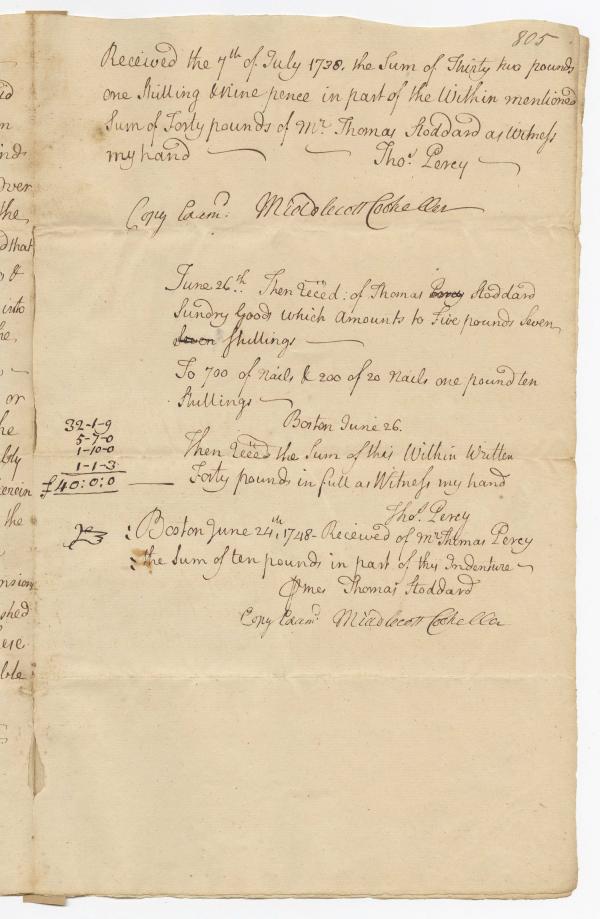 805
Received the 7th of July 1738. the Sum of Thirty two pounds
one Shilling & Nine pence in part of the Within mentioned
Sum of Forty pounds of Mr. Thomas Stoddard as Witness
my hand
Thos. Percy
Copy Exam:
June 26th: Then Rcced: of Thomas Percy Stoddard
Sundry Goods which Amounts to Five pounds Seven
Seven Shillings
To 700 of Nails & 200 of 20 Nails one pound ten
Shillings
Boston June 26.
32-1-9
5-7-0
1-10-0
1-1-3
£40:0:0
Then Rcced the Sum of this Within Written
Forty pounds in full as Witness my hand
Thos. Percy
: Boston June 24th: 1748- Received of Mr. Thomas Percy
: the Sum of ten pounds in part of this Indenture
mee Thomas Stoddard
Copy Exam:
id
n
nd
Over
the
d that
&
into
he
or
he
bly
erein
the
nsion
shed
ble